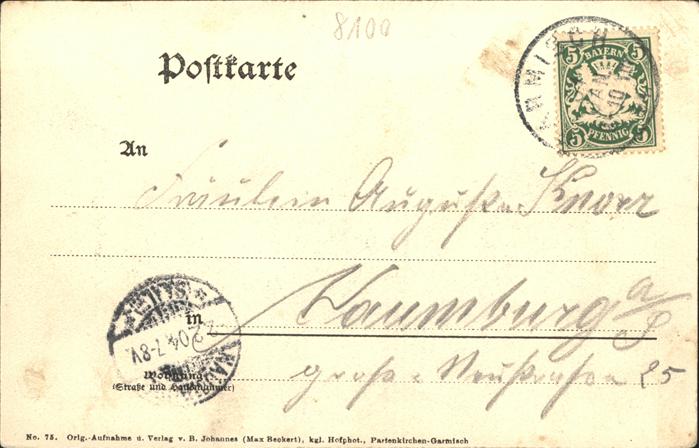 8100
Postkarte
5 BAYERN 5
5 PFENNIG 5
ARMISCH
JAN
10
An
Fräulein Auguste Knorr
in Naumburg a/S
2.2.04.7-8V.
Wohnung
(Straße und Hausnummer)
große Neustraße 25
No. 75. Orig.-Aufnahme u. Verlag v. B. Johannes (Max Beckert), kgl. Hofphot., Partenkirchen-Garmisch